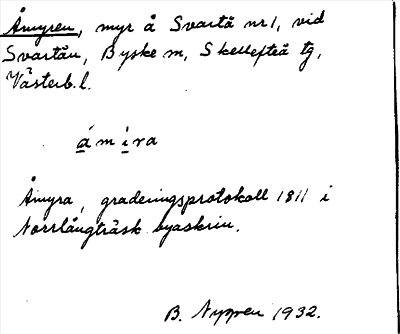 Åmyren, myr å Svartå nr 1, vid
Svartån, Byske m, Skellefteå tg,
Västerb. l.
ámira
Åmyra, graderingsprotokoll 1811 i
Norrlångträsk byaskrin.
B. Nyppen 1932.